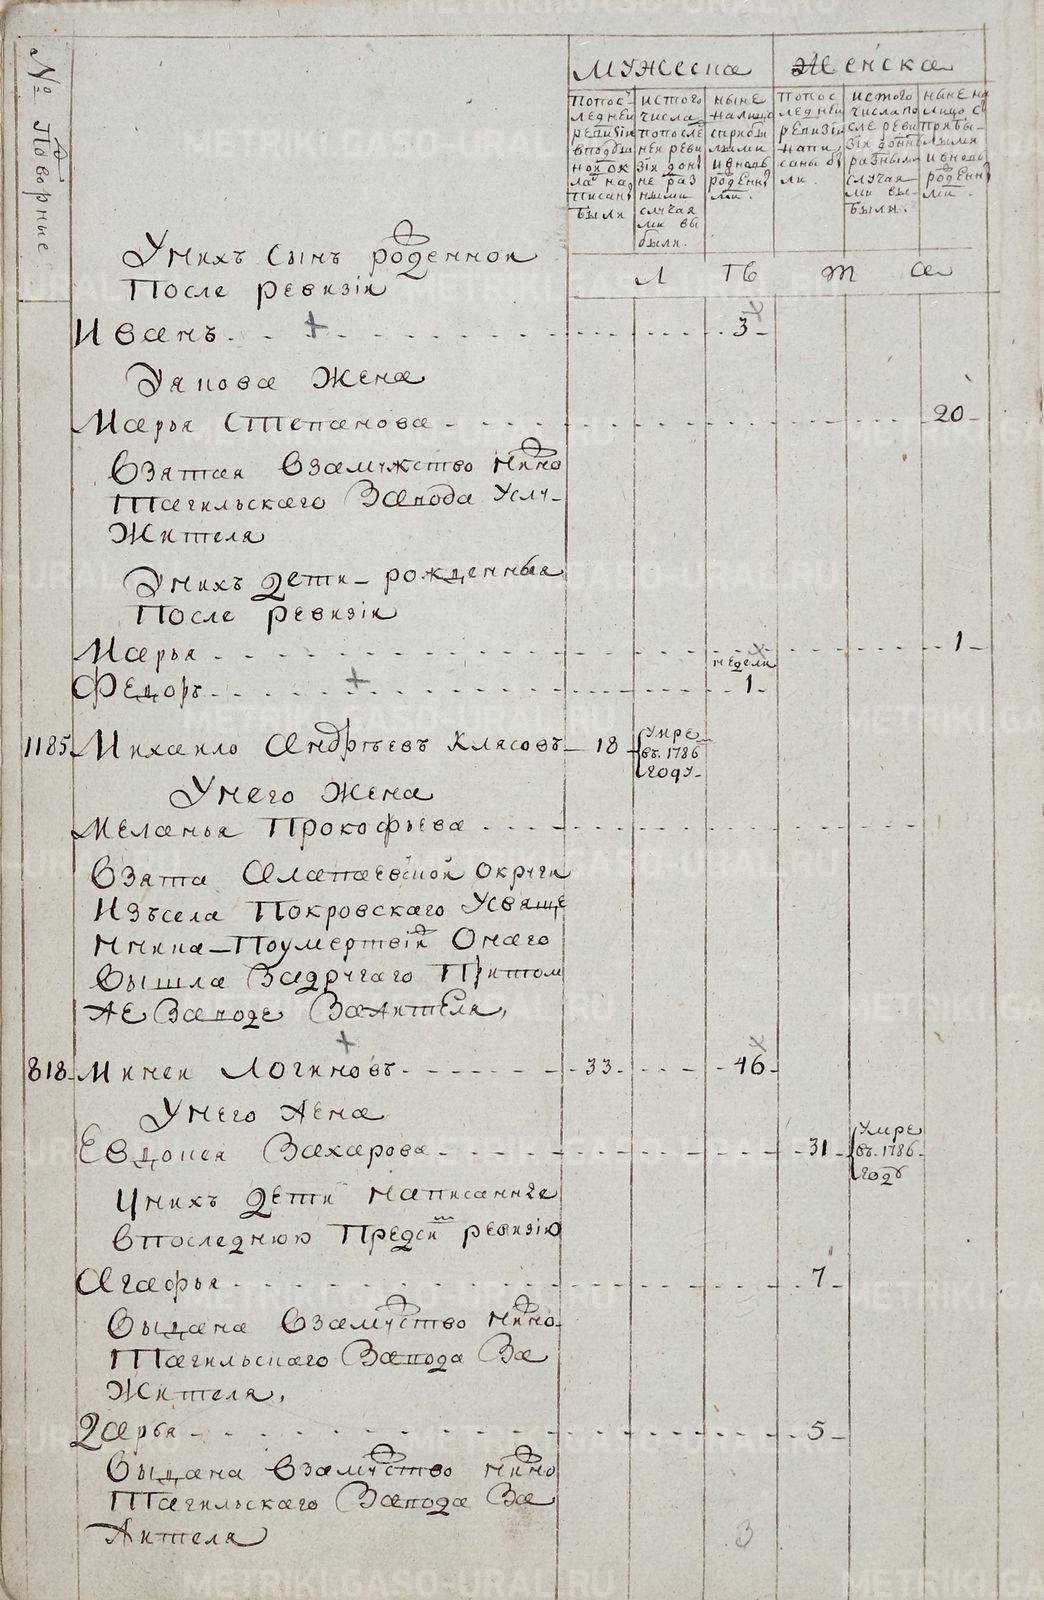 № Подворные
Мужеска Женска
По последней ревизии в подушной оклад написаны были
Из того числа по после ней ревизiи до ны не разными случаями выбыли.
Ныне налицо с прибылыми и вновь рожденными.
По последней ревизiи написаны были.
Из того числа после ревизiи доныне разными случаями выбыли.
Ныне на лицо с прибылыми и вновь рожденными.
Л тъ т а
У нихъ сынъ рожденной
После ревизiи
Иванъ 3
Яковa жена
Марья Степанова 20
Взятая взамужство Нижно
Тагильскаго завода у служ
Жителя
У нихъ дети рожденныя
После ревизiи
Марья 1
недели
Федоръ 1
1185 Михаило Андреевъ Клясовъ 18 умре въ 1786 году
У него жена
Меланья Прокофьева
Взята Алапаевской округи
Изъ села Покровскаго у свяще
нника По умертвiи онаго
вышла за другаго При том
же Заводе за жителя,
818 Миней Логиновъ 33 46
У него жена
Евдокея Захарова 31 умре въ 1786 годъ
У нихъ дети написанные
в последнюю пред сей ревизiю
Агафья 7
Выдана взамужство Нижно
Тагильскаго завода за
Жителя,
Дарья 5
Выдана взамужство Нижно
Тагильскаго завода за
Жителя
3
METRIKI.GASO-URAL.RU